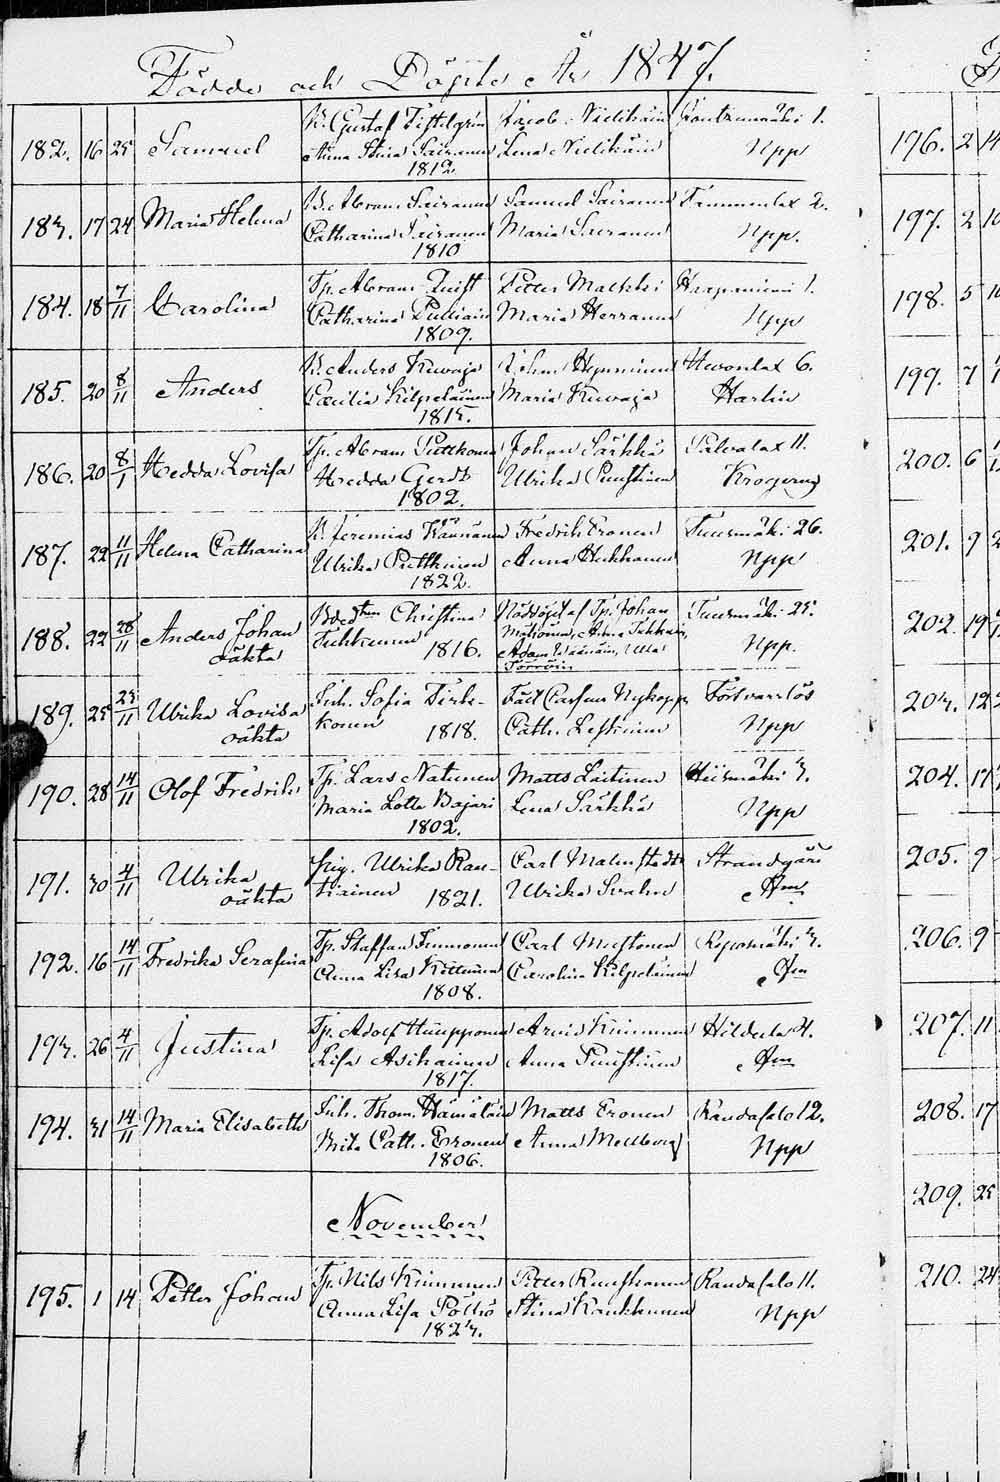 Födde och Döpte År 1847.
182. 16 25 Samuel
B. Gustaf Tistelgrén
Anna Stina Sairanen
1812.
Jacob Nielikäin
Lena Nielikäin
Npp
183. 17 24 Maria Helena
B. Abram Sairanen
Catharina Sairanen
1810
Samuel Sairanen
Maria Sairanen
Tammenlax 2.
Npp.
184. 18 7/11 Carolina
Tp. Abram Quist
Catharina Pulliain
1809.
Petter Malkki
Maria Herranen
Haapaniemi 1.
Npp
185. 20 8/11 Anders
B. Anders Kuvaja
Cæcilia Kilpeläinen
1815.
Johan Heponinen
Maria Kuvaja
Hevonlax 6.
Harlin
186. 20 8/1 Hedda Lovisa
Tp. Abram Puttkonen
Hedda Gerdt
1802.
Johan Särkkä
Ulrika Puustinen
Salvalax 11.
Krogerus
187. 22 11/11 Helena Catharina
B. Jeremias Kännänen
Ulrika Puttkinen
1822.
Fredrik Eronen
Anna Hukkanen
Tuusmäki 26.
Npp
188. 22 28/11 Anders Johan
oäkta
Christina
Tuhkunen 1816.
Nöddöpt af Tp. Johan
Adam Väänäin, Ulla
Törröin
Tuusmäki 25.
Npp.
189. 25 23/11 Ulrika Lovisa
oäkta
Inh. Sofia Tirk-
konen 1818.
Cath. Leskinen
Försvarslös
Npp
190. 28 14/11 Olof Fredrik
Tp. Lars Natunen
Maria Lotta Bajari
1802.
Matts Laitinen
Lena Särkkä
Hiismäki 3.
Npp
191. 30 4/11 Ulrika
oäkta
Pig. Ulrika Rau-
tiainen 1821.
Carl Malmstedt
Ulrika Svahn
Strandgård
192. 16 14/11 Fredrika Serafina
Tp. Staffan Immonen
Anna Lisa Kettunen
1808.
Carl Mustonen
Carolina Kilpeläinen
Repomäki 3.
193. 26 4/11 Justina
Tp. Adolf Huupponen
Lisa Asikainen
1817.
Arvid Kinnunen
Anna Puustinen
194. 31 14/11 Maria Elisabeth
Inh. Thom. Hämäläin
Brita Cath. Eronen
1806.
Matts Eronen
Anna Mellberg
Randasalo 12.
Npp
November
195. 1 14 Petter Johan
Tp. Nils Kinnunen
Anna Lisa Pöllö
1823.
Petter Ruuskanen
Stina Kaukkunen
Randasalo 11.
Npp
196. 2 14
197. 2 10
198. 5
199. 7
200. 6
201. 9
202. 19
203. 12
204. 17
205. 9
206. 9
207. 11
208. 17
209. 25
210. 24